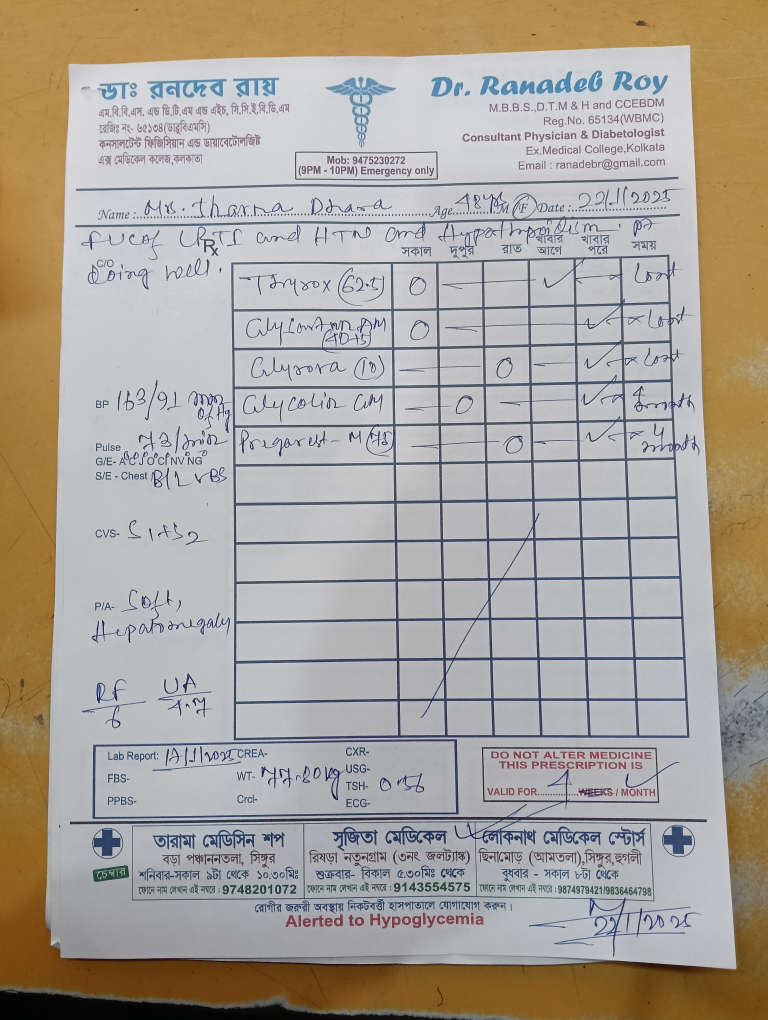 ডাঃ রনদেব রায়
এম.বি.বি.এস. এন্ড ডি.টি.এম এন্ড এইচ, সি.সি.ই.বি.ডি.এম
রেজিঃ নং- ৬৫১৩৪(ডাব্লুবিএমসি)
কনসালটেন্ট ফিজিসিয়ান এন্ড ডায়াবেটোলজিষ্ট
এক্স মেডিকেল কলেজ,কলকাতা
Mob: 9475230272
(9PM - 10PM) Emergency only
Dr. Ranadeb Roy
M.B.B.S.,D.T.M & H and CCEBDM
Reg.No. 65134(WBMC)
Consultant Physician & Diabetologist
Ex.Medical College,Kolkata
Email : ranadebr@gmail.com
Name : Mrs. Jharna Dhara Age 48 yrs M (F) Date : 22/1/2025
FUC of and HTN and Hypothyroidism. pt
C/O doing well.
Rx
সকাল দুপুর রাত খাবার আগে খাবার পরে সময়
Thyrox (62.5) O — — ✓ — Cont
(40+5) O — — ✓ Cont
(10) — O — ✓ Cont
BP 163/91 mm of Hg
— O — ✓ 4 month
Pulse 73/min
M (75) — O — ✓ 4 month
G/E- A° J° O° C° NV° NG°
S/E - Chest B/L VBS
CVS- S1+S2
P/A- Soft,
Hepatomegaly
RF
6
UA
4.7
Lab Report: 17/1/2025 CREA- CXR-
FBS- WT- 77.80 kg USG-
PPBS- Crcl- TSH- 0.56
ECG-
DO NOT ALTER MEDICINE
THIS PRESCRIPTION IS
VALID FOR 4 WEEKS / MONTH
চেম্বার
তারামা মেডিসিন শপ
বড়া পঞ্চাননতলা, সিঙ্গুর
শনিবার-সকাল ৯টা থেকে ১০.৩০মিঃ
ফোনে নাম লেখান এই নম্বরে : 9748201072
সৃজিতা মেডিকেল
রিষড়া নতুনগ্রাম (৩নং জলট্যাঙ্ক)
শুক্রবার- বিকাল ৫.৩০মিঃ থেকে
ফোনে নাম লেখান এই নম্বরে : 9143554575
লোকনাথ মেডিকেল স্টোর্স
ছিনামোড় (আমতলা),সিঙ্গুর,হুগলী
বুধবার - সকাল ৮টা থেকে
ফোনে নাম লেখান এই নম্বরে : 9874979421/9836464798
রোগীর জরুরী অবস্থায় নিকটবর্তী হাসপাতালে যোগাযোগ করুন।
Alerted to Hypoglycemia
22/1/2025